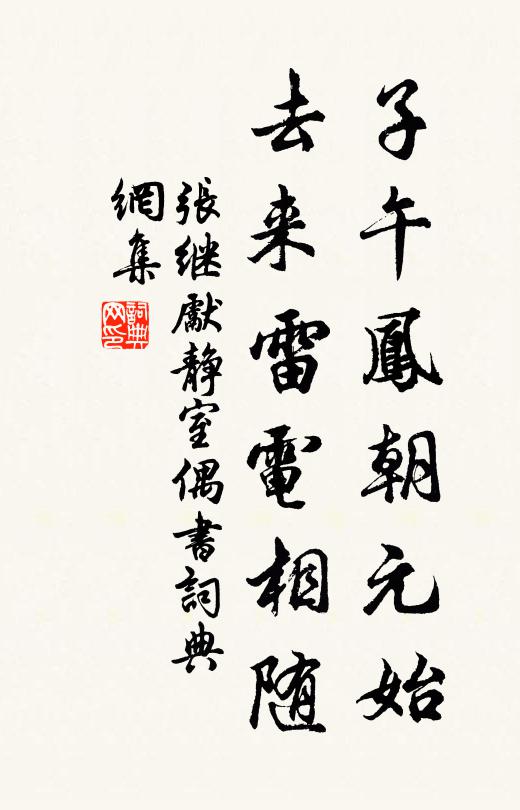 子午鳳朝元始
去来雷電相随
張継獻静室偶書詞典
網集
詞典
网印